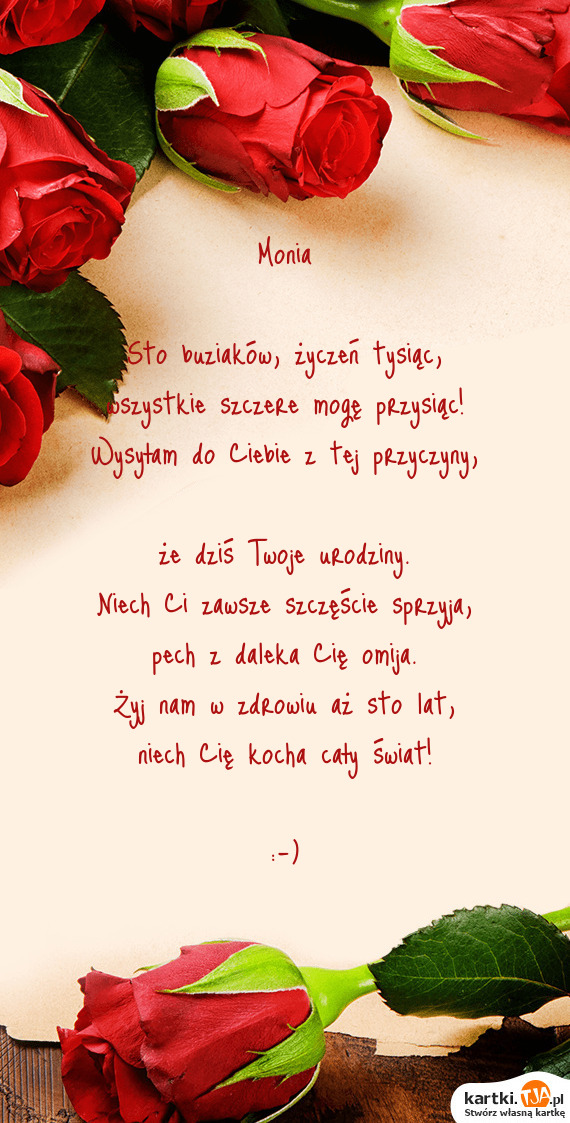 Monia
Sto buziaków, życzeń tysiąc,
wszystkie szczere mogę przysiąc!
Wysyłam do Ciebie z tej przyczyny,
że dziś Twoje urodziny.
Niech Ci zawsze szczęście sprzyja,
pech z daleka Cię omija.
Żyj nam w zdrowiu aż sto lat,
niech Cię kocha cały świat!
:-)
kartki.TJA.pl
Stwórz własną kartkę